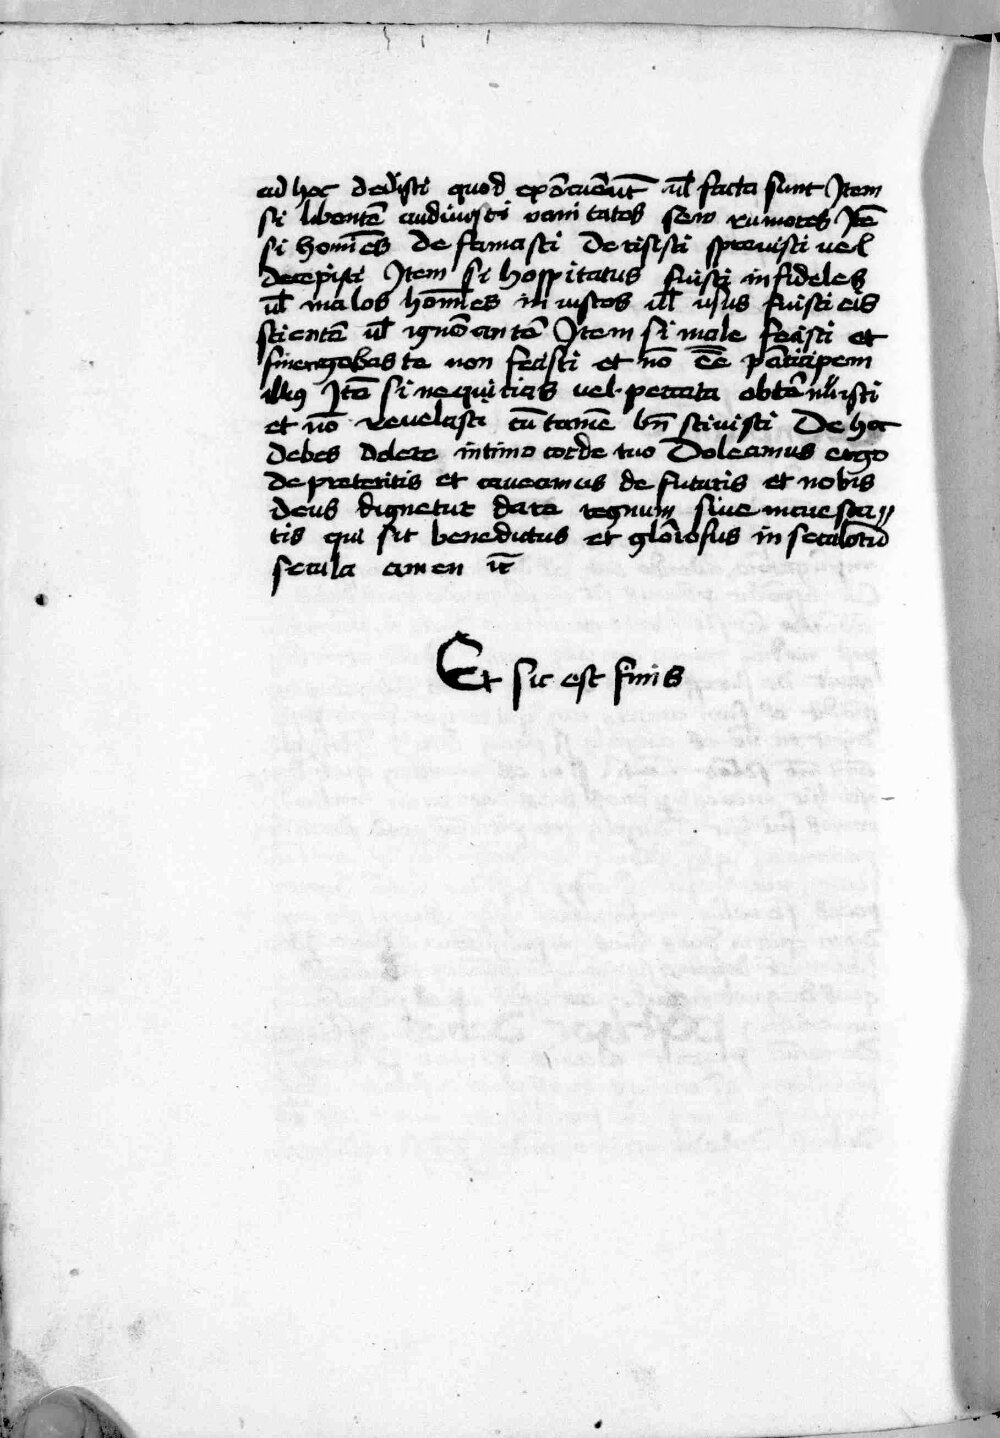 ad hoc dedisti quod exōcuerūt vl̄ facta sunt Item
si libentē audiuisti vani tates seu rumores Itē
si homīes de famasti derisisti spreuisti vel
decepisti Item si hospitatus fuisti infideles
vl̄ malos homīes in iustos vl̄ vsus fuisti eis
scientē vl̄ ignōantē Item si male fecisti et
te non fecisti et nō eē pticipem
illius Itē si nequicias vel peccata obtēnuisti
et nō reuelasti cū tamē bn̄ sciuisti De hoc
debes dolere intimo corde tuo Doleamus ergo
de preteritis et caueamus de futuris et nobis
deus dignetur dare regnum siue maiesta〃
tis qui sit benedictus et glōiosus in seculorū
secula amen ēt
Et sic est finis